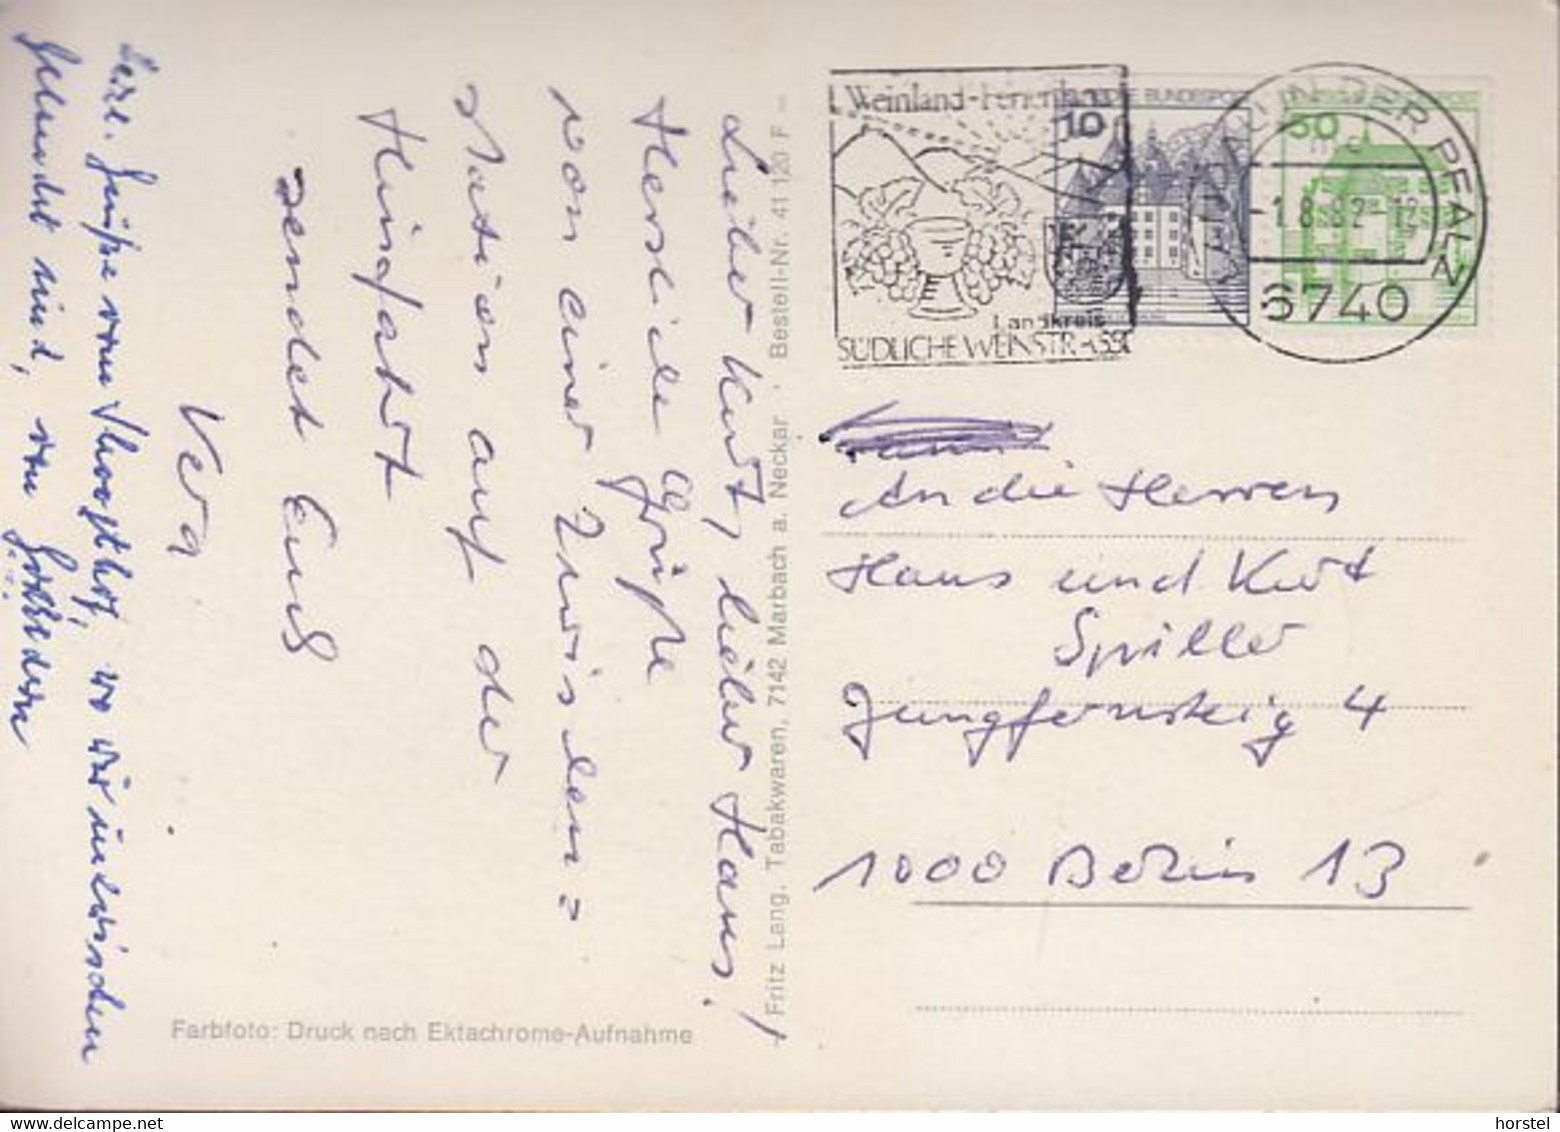 Lieber Kurt, lieber Hans!
Herzliche Grüße
von einer Zwischen=
station auf der
Hinfahrt
sendet Euch
Vera
Herzl. Grüße vom
wo wir inzwischen
gelandet sind, von
Fritz Lang, Tabakwaren, 7142 Marbach a. Neckar · Bestell-Nr. 41 120 F
Farbfoto: Druck nach Ektachrome-Aufnahme
Weinland-Ferienland
Landkreis
SÜDLICHE WEINSTRASSE
10
BUNDESPOST
50
IN DER PFALZ
-1.8.82-12
6740
An die Herren
Hans und Kurt
Spiller
Jungfernsteig 4
1000 Berlin 13
horstel
© delcampe.net